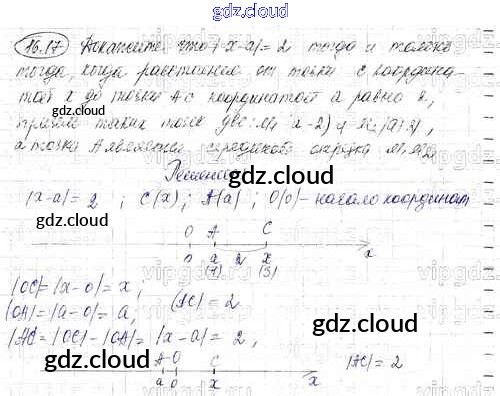 gdz.cloud
16.17 Докажите, что |x-a|=2 тогда и только
тогда, когда расстояние от точки с координа-
той x до точки A с координатой a равно 2,
причем таких точек две: M₁(a-2) и M₂(a+2),
а точка A является серединой отрезка M₁M₂
Решение
gdz.cloud
|x-a|=2 ; C(x); A(a); O(0) - начало координат
gdz.cloud
O A C
0 a 2 x
(1) (3) x
|OC|=|x-0|=x;
|OA|=|a-0|=a; |AC|=2
gdz.cloud gdz.cloud
|AC|=|OC|-|OA|=|x-a|=2,
gdz.cloud
A O C |AC|=2
a 0 x x
gdz.cloud